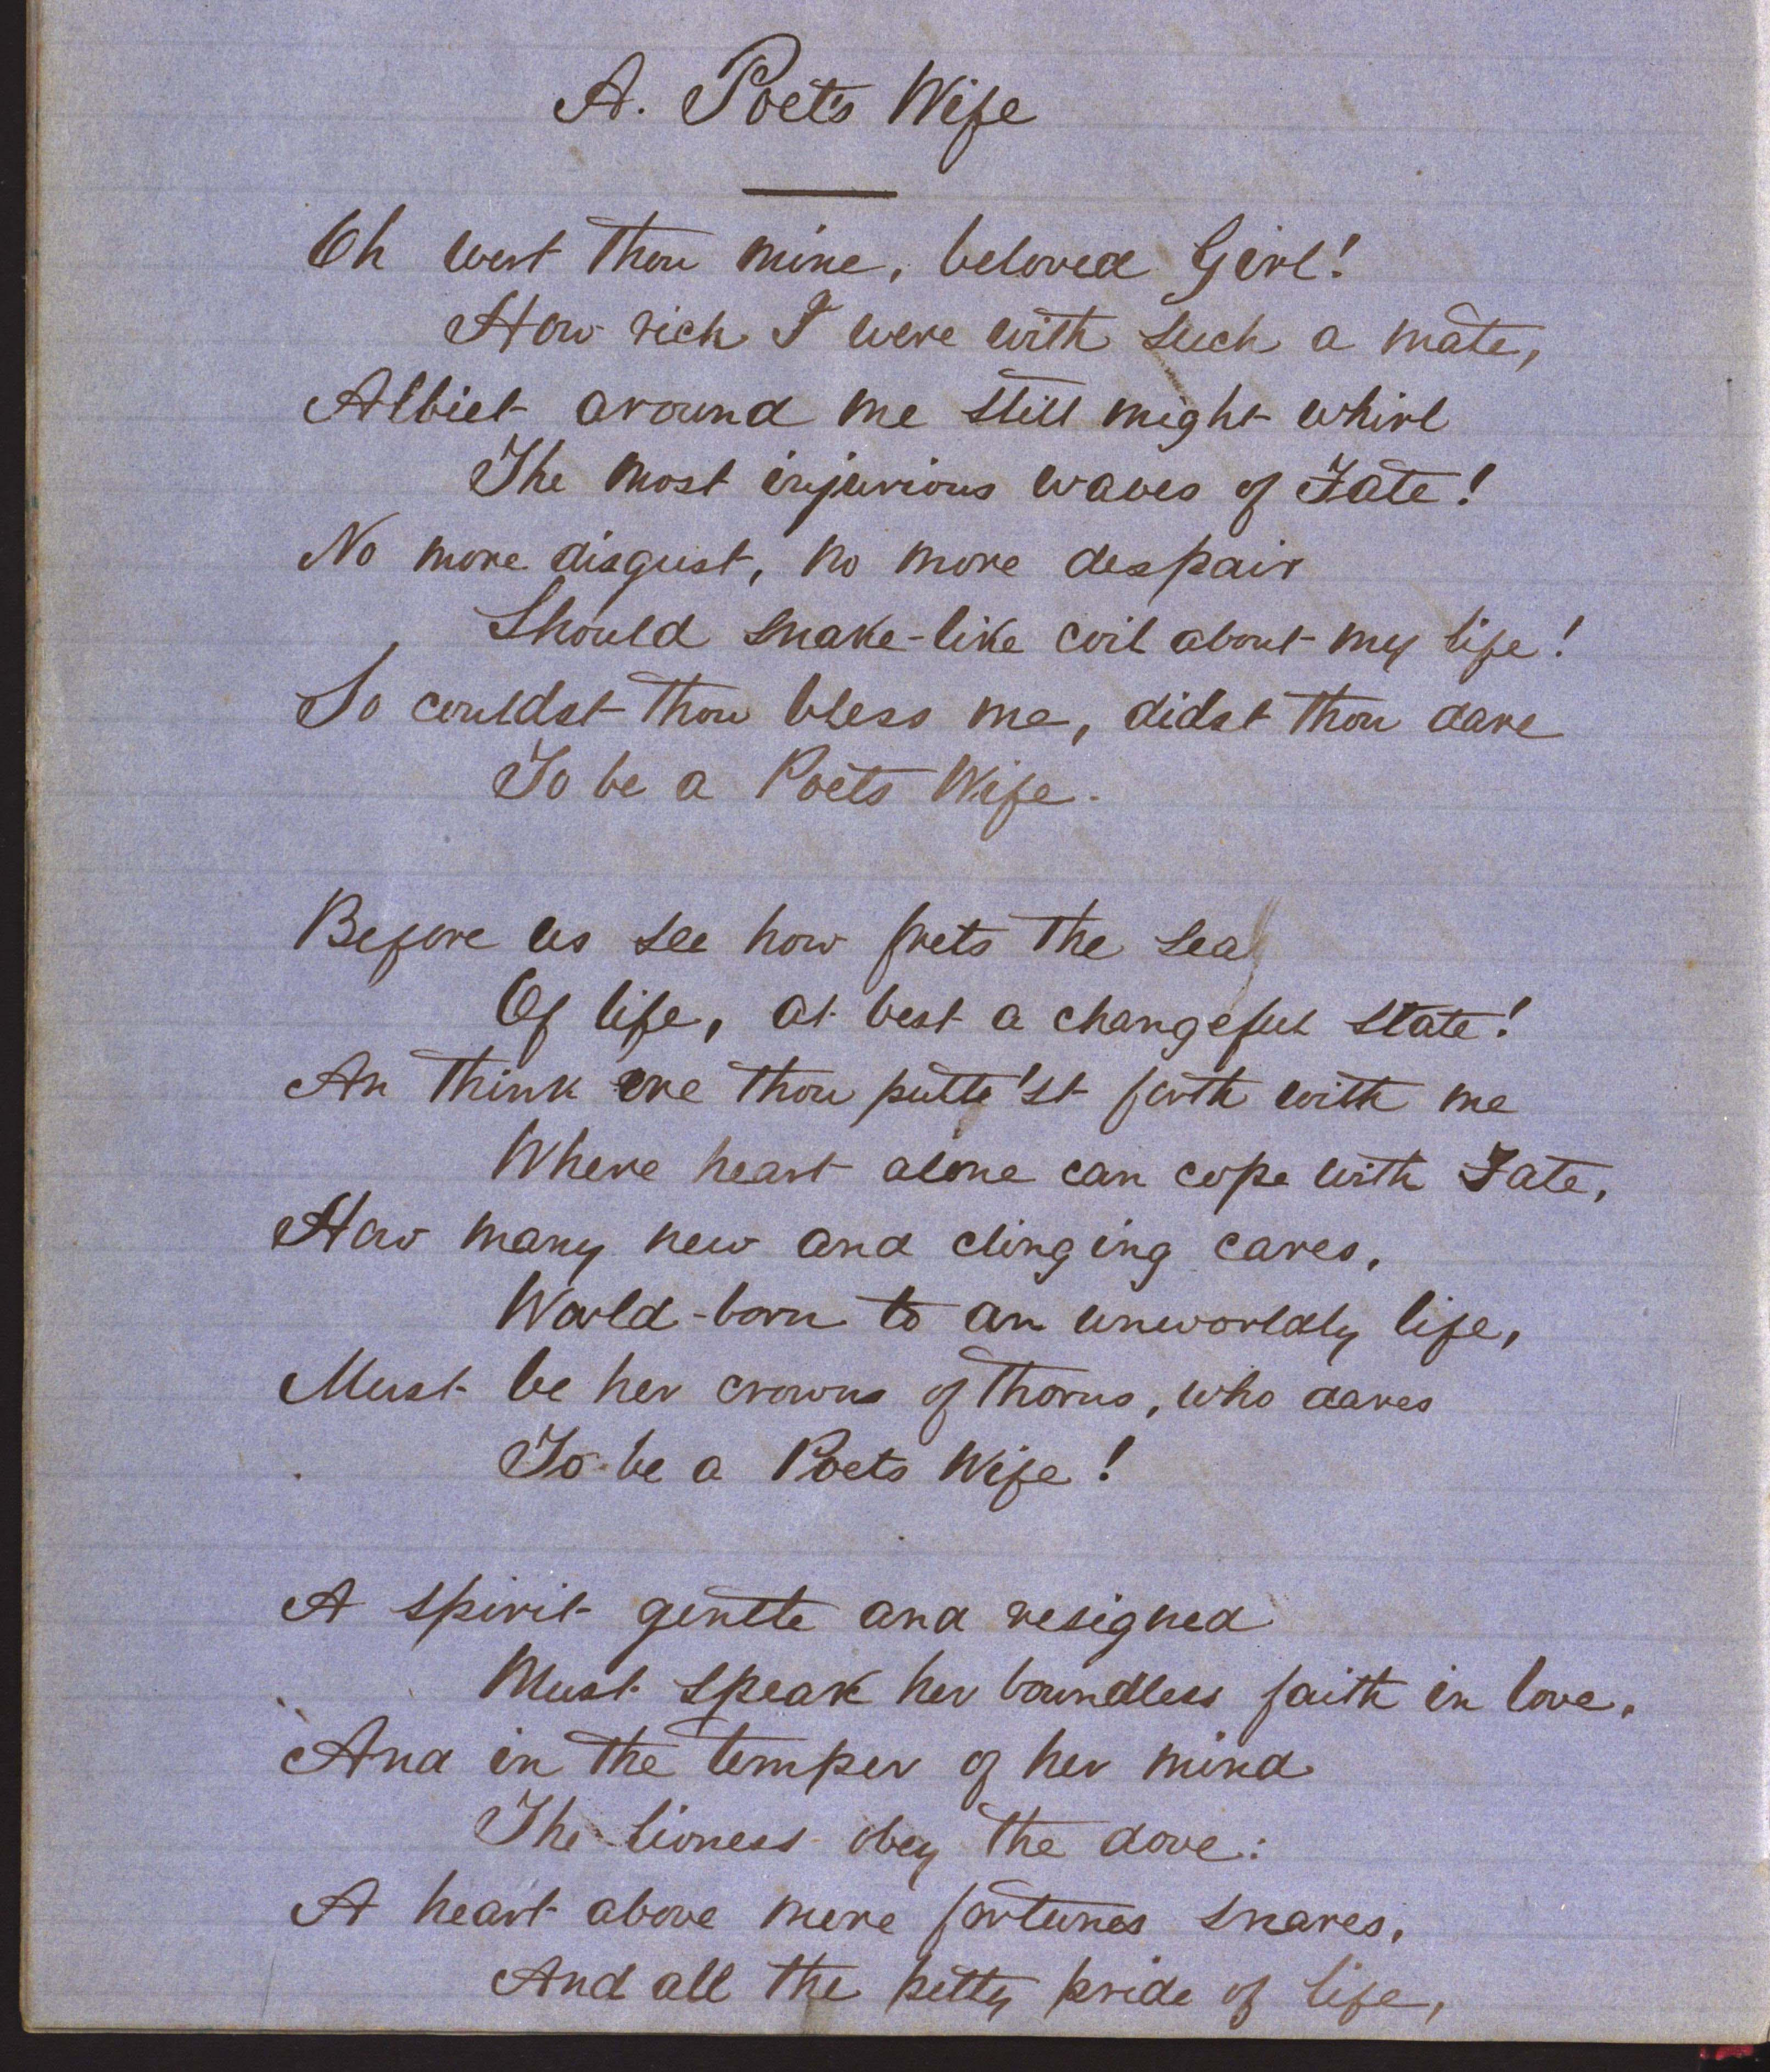 A. Poets Wife
Oh wert thou mine, beloved Girl!
How rich I were with such a mate,
Albiet around me still might whirl
The most injurious waves of Fate!
No more disgust, no more despair
Should snake-like coil about my life!
So couldst thou bless me, didst thou dare
To be a Poets Wife.
Before us see how frets the sea
Of life, at best a changeful state!
An think ere thou putte'st forth with me
Where heart alone can cope with Fate,
How many new and clinging cares,
World-born to an unworldly life,
Must be her crowns of thorns, who dares
To be a Poets Wife!
A spirit gentle and resigned
Must speak her boundless faith in love,
And in the temper of her mind
The lioness obey the dove:
A heart above mere fortunes snares,
And all the petty pride of life,